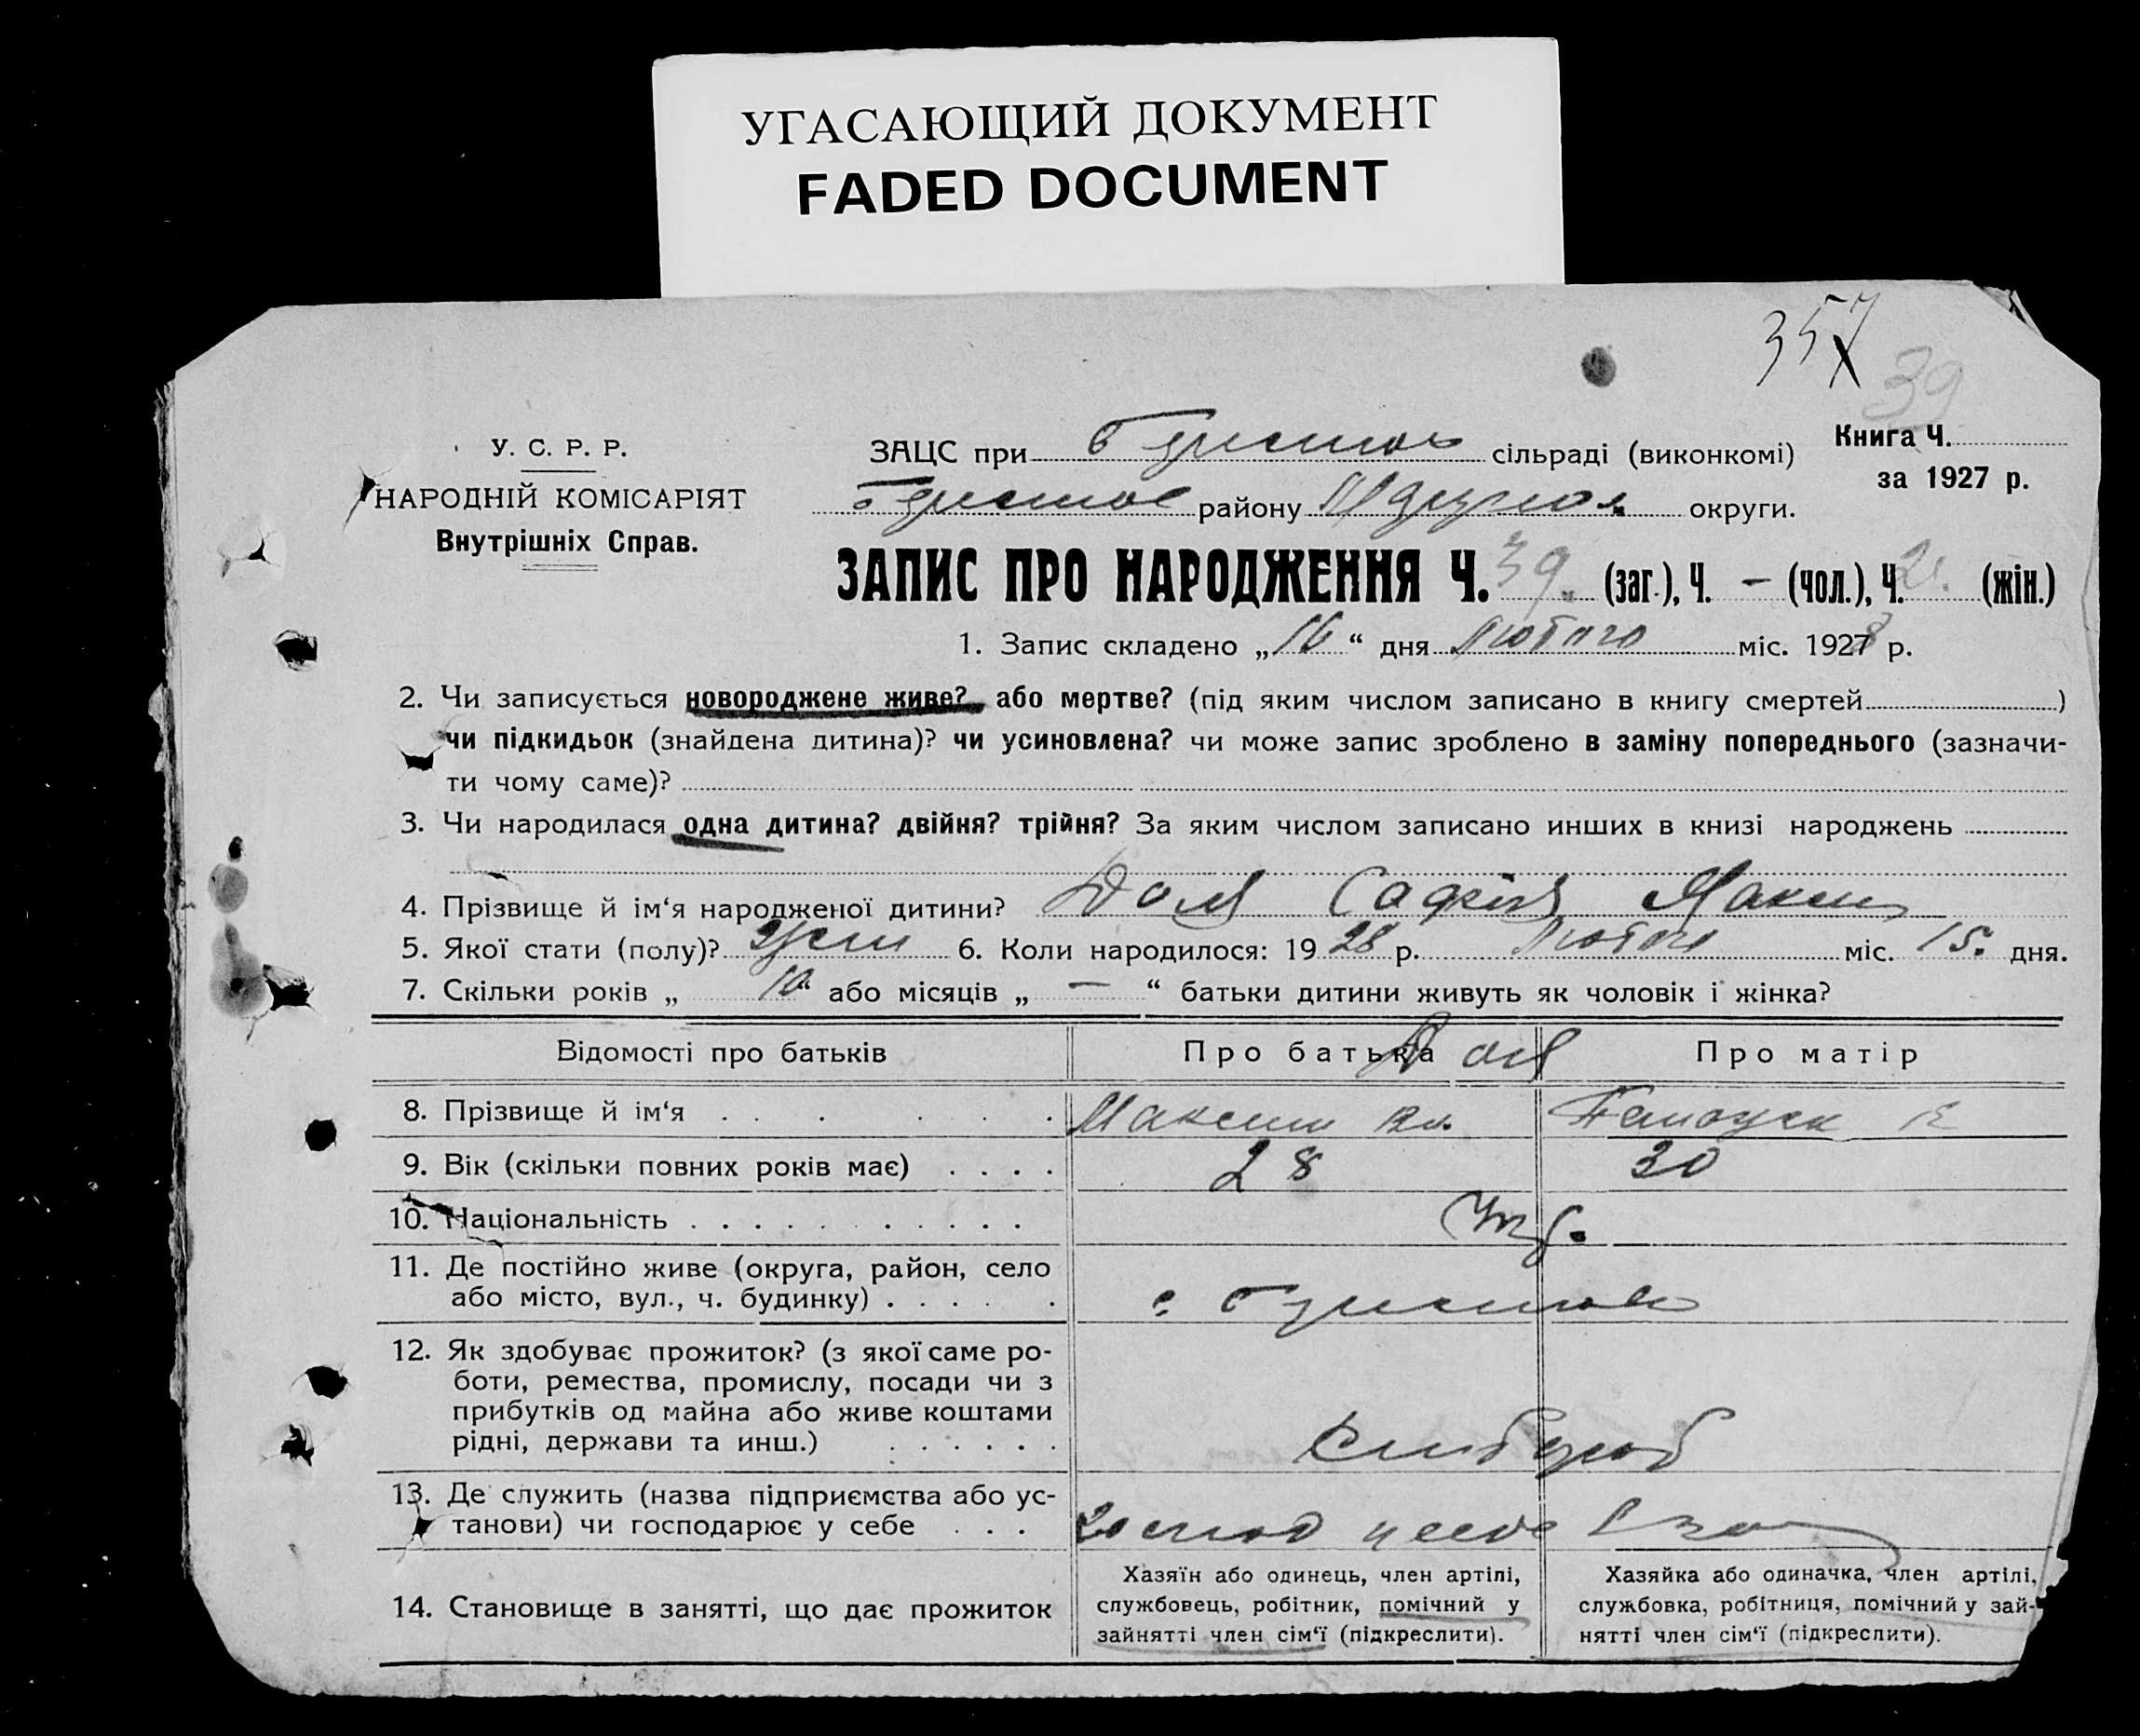 УГАСАЮЩИЙ ДОКУМЕНТ
FADED DOCUMENT
357
39
У. С. Р. Р.
НАРОДНІЙ КОМІСАРІЯТ
Внутрішніх Справ.
ЗАЦС при сільраді (виконкомі)
району округи.
Книга Ч.
за 1927 р.
ЗАПИС ПРО НАРОДЖЕННЯ Ч. 39. (заг.), Ч. — (чол.), Ч. (жін.)
1. Запис складено „16“ дня Лютого міс. 1928 р.
2. Чи записується новороджене живе? або мертве? (під яким числом записано в книгу смертей )
чи підкидьок (знайдена дитина)? чи усиновлена? чи може запис зроблено в заміну попереднього (зазначи-
ти чому саме)?
3. Чи народилася одна дитина? двійня? трійня? За яким числом записано инших в книзі народжень
4. Прізвище й ім‘я народженої дитини? Доля Софія Максим
5. Якої стати (полу)? жін 6. Коли народилося: 1928 р. Лютого міс. 15. дня.
7. Скільки років „10“ або місяців „—“ батьки дитини живуть як чоловік і жінка?
Відомості про батьків Про батька Доля Про матір
8. Прізвище й ім‘я Максим
9. Вік (скільки повних років має) 28 30
10. Національність Укр.
11. Де постійно живе (округа, район, село
або місто, вул., ч. будинку) с.
12. Як здобуває прожиток? (з якої саме ро-
боти, ремества, промислу, посади чи з
прибутків од майна або живе коштами
рідні, держави та инш.) хлібороб
13. Де служить (назва підприємства або ус-
танови) чи господарює у себе господ у себе
14. Становище в занятті, що дає прожиток
Хазяїн або одинець, член артілі,
службовець, робітник, помічний у
зайнятті член сім‘ї (підкреслити).
Хазяйка або одиначка, член артілі,
службовка, робітниця, помічний у зай-
нятті член сім‘ї (підкреслити).